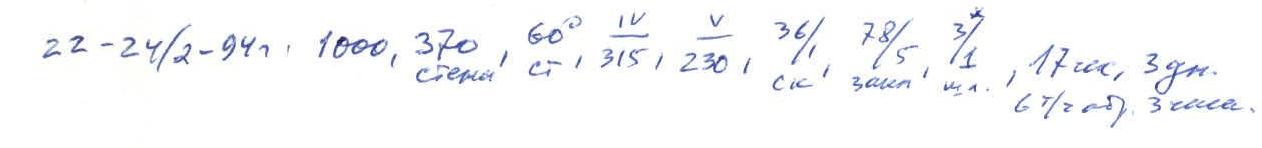 22-24/2-94г. 1000, 370 стена, 60° ст, IV/315, V/230, 36/ ск, 78/5 закл, 3*/1 шл., 17 чел, 3 дн.
6 т/ч обр. 3 часа.